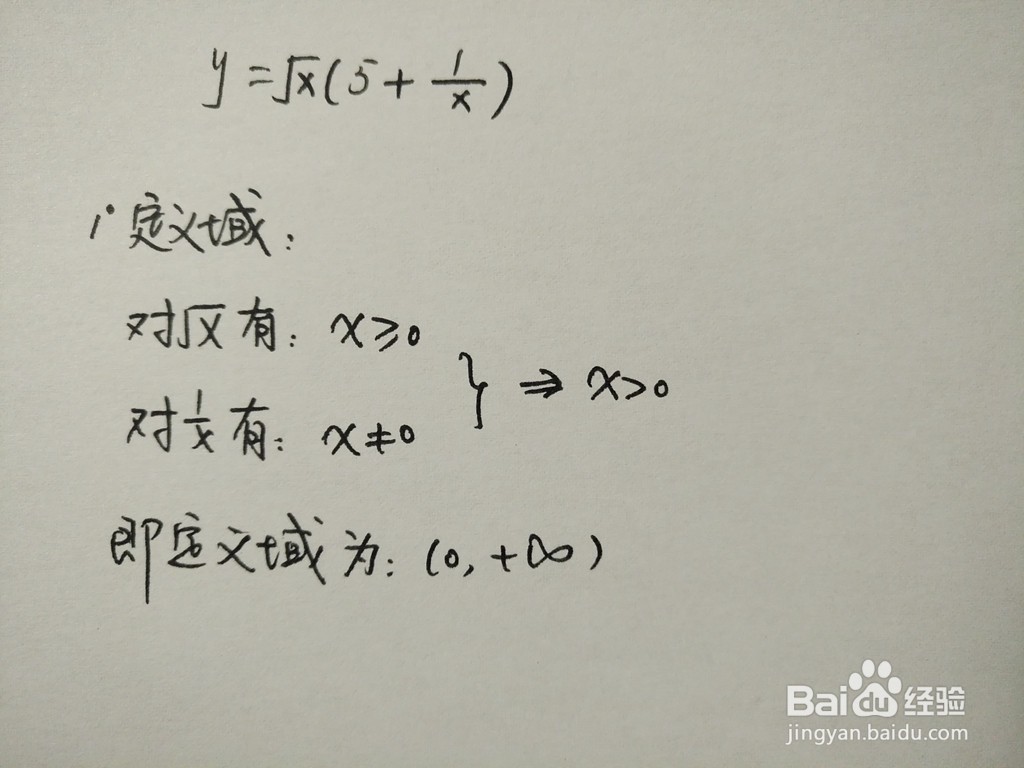 y=√x(5+1/x)
1° 定义域:
对√x有: x≥0
对1/x有: x≠0
} ⇒ x>0
即定义域为: (0,+∞)
Baidu经验
jingyan.baidu.com